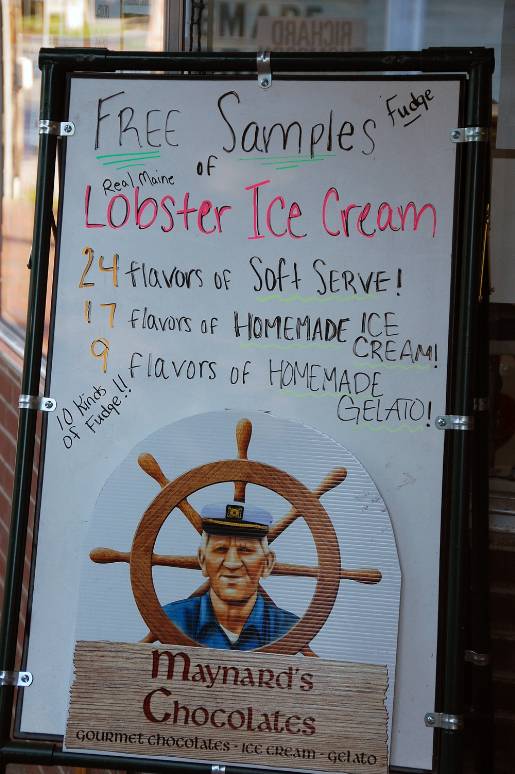 MADE
RICHARD
FREE Samples Fudge
of
Real Maine
Lobster Ice Cream
24 flavors of Soft SERVE!
17 flavors of HOMEMADE ICE
CREAM!
9 flavors of HOMEMADE
GELATO!
10 Kinds
of Fudge!!
Maynard's
Chocolates
GOURMET CHOCOLATES · ICE CREAM · GELATO